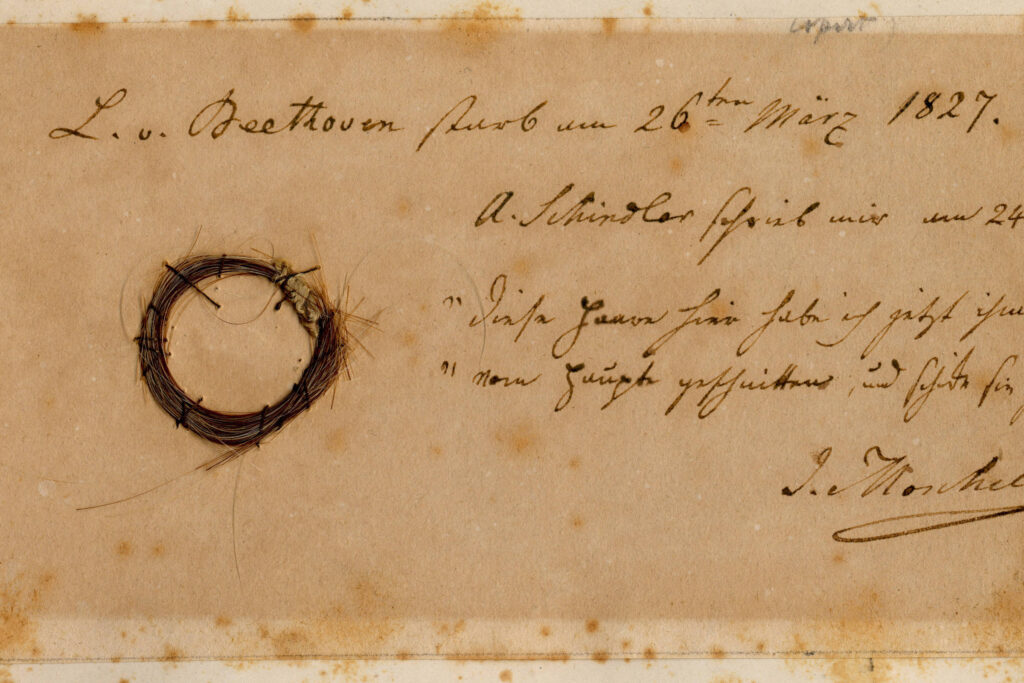 L. v. Beethoven starb am 26ten März 1827.
A. Schindler schrieb mir am 24
" Diese Haare hier habe ich jetzt ihm
" vom Haupte geschnitten, und schicke sie
J. Moschel